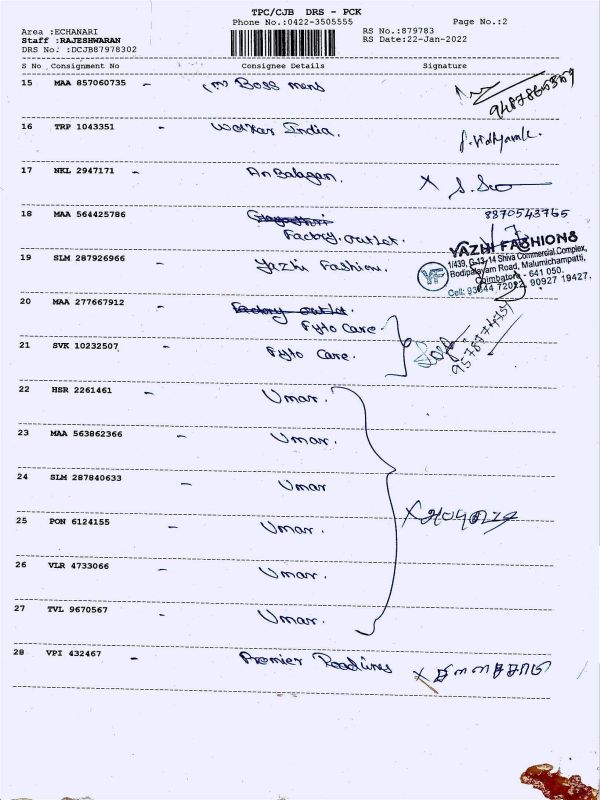 TPC/CJB DRS - PCK
Phone No.:0422-3505555 Page No.:2
Area :ECHANARI RS No.:879783
Staff :RAJESHWARAN RS Date:22-Jan-2022
DRS No. :DCJB87978302
S No Consignment No Consignee Details Signature
15 MAA 857060735 - Boss mens
9487865369
16 TRP 1043351 - Worker India.
17 NKL 2947171 - Anbalagan. X
18 MAA 564425786 8870543765
Factory. outlet.
19 SLM 287926966 - Yazhi Fashion.
YAZHI FASHIONS
1/439, G-13, 14 Shiva Commercial Complex,
Bodipalayam Road, Malumichampatti,
Coimbatore - 641 050.
YF
20 MAA 277667912 - Factory outlet.
Fyto Care
21 SVK 10232507 - Fyto Care.
22 HSR 2261461 - Umar.
23 MAA 563862366 - Umar.
24 SLM 287840633 - Umar
25 PON 6124155 - Umar.
X
26 VLR 4733066 - Umar.
27 TVL 9670567 - Umar.
28 VPI 432467 - Premier Roadlines X